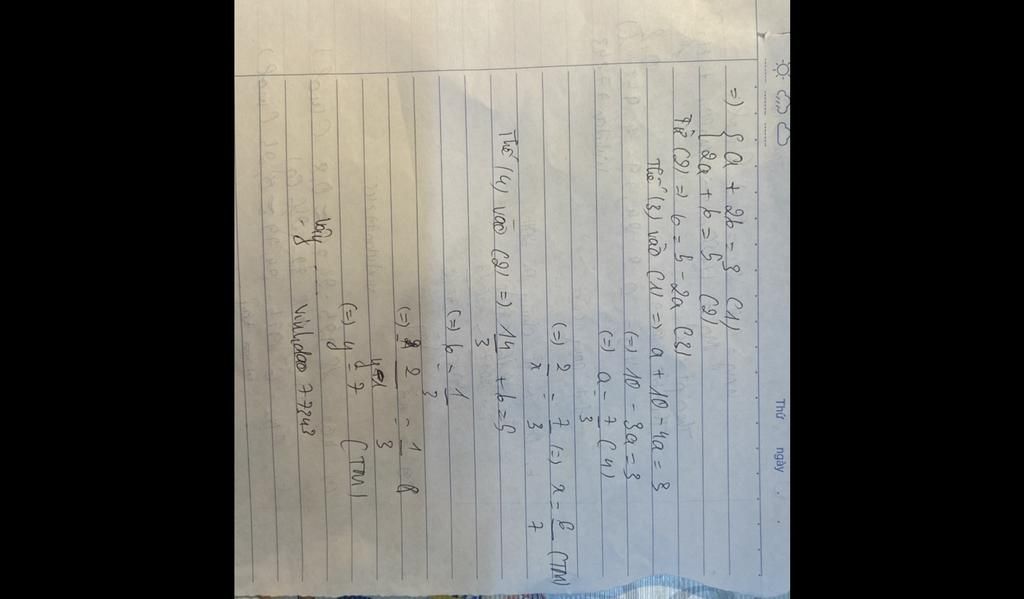 Thứ ngày
=) { a + 2b = 3 (1)
{ 2a + b = 5 (2)
Từ (2) =) b = 5 - 2a (3)
Thế (3) vào (1) =) a + 10 - 4a = 3
(=) 10 - 3a = 3
(=) a = 7/3 (4)
(=) 2/x = 7/3 (=) x = 6/7 (TM)
Thế (4) vào (2) =) 14/3 + b = 5
(=) b = 1/3
(=) 2 = 1/3
(=) y = 7 (TM)
Vậy